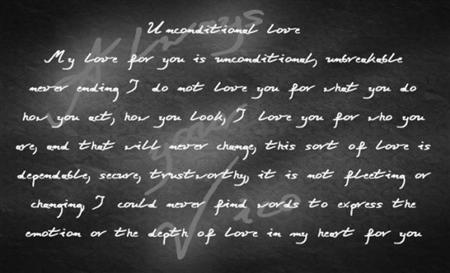 Unconditional Love
My love for you is unconditional, unbreakable
never ending I do not love you for what you do
how you act, how you look, I love you for who you
are, and that will never change, this sort of love is
dependable, secure, trustworthy, it is not fleeting or
changing, I could never find words to express the
emotion or the depth of love in my heart for you
Always